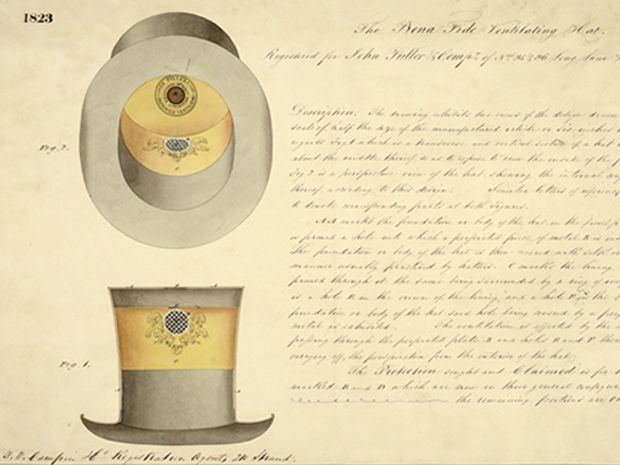 1823
The Bona Fide Ventilating Hat.
Registered for John Fuller & Compy. of Nos. 95 & 96 Long Lane
Description: The drawing exhibits two views of the design drawn
scale of half the size of the manufactured article or six inches
regards Fig. 1 which is a transverse and vertical section of a hat
about the middle thereof, so as to expose to view the inside of the
Fig. 2 is a perspective view of the hat shewing the internal
thereof according to this design. Similar letters of
to denote corresponding parts in both Figures.
marks the foundation or body of the hat, in the
is formed a hole into which a perforated piece of metal B is
The foundation or body of the hat is then covered with silk
manner usually practised by hatters. C marks the lining
formed through it the same being surrounded by a ring of
is a hole in the crown of the lining, and a hole in the
foundation or body of the hat said hole being covered by a
metal as exhibited. The ventilation is effected by the
passing through the perforated plate B and holes
carrying off the perspiration from the interior of the hat.
The Protection sought and Claimed is for
marked B and D which are new in their general
the remaining portions are
Fig. 2.
Fig. 1.
Registration Agents, 210 Strand.